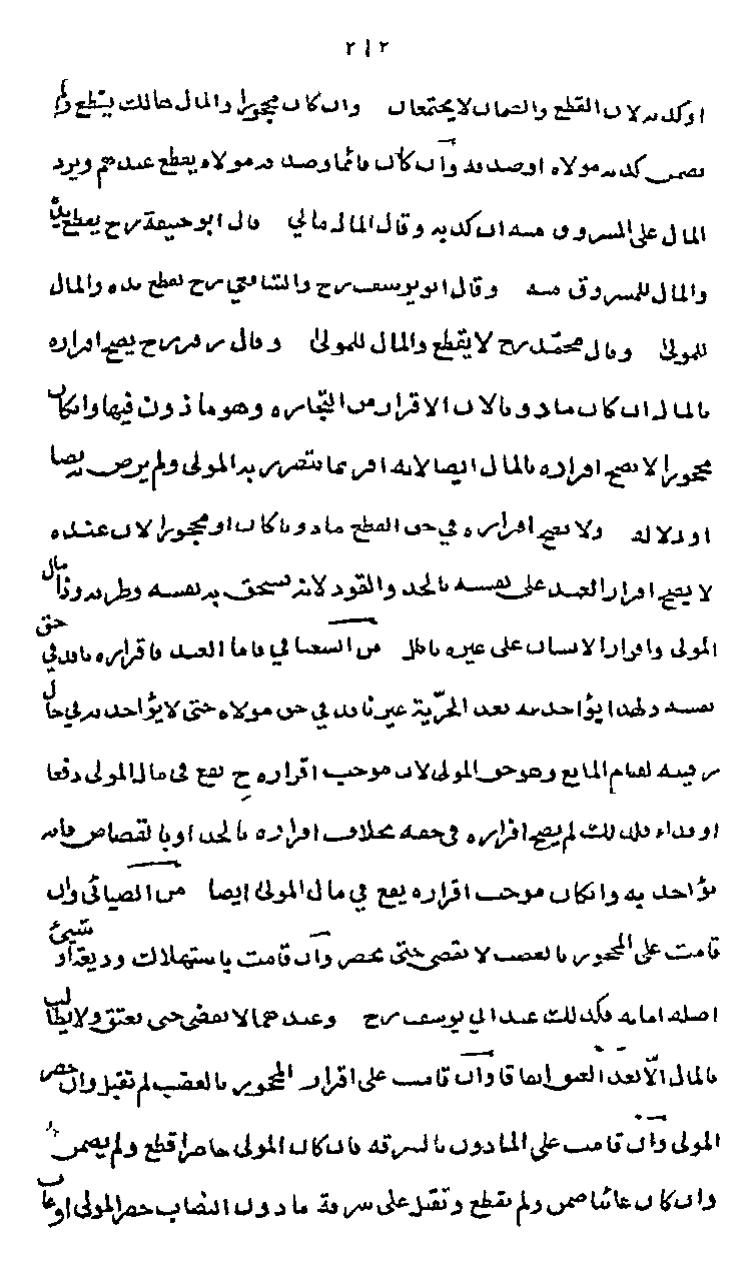 ٢١٢
او كذبه لان القطع والضمان لا يجتمعان وان كان محجورا والمال هالك يقطع ولم
يضمن كذبه مولاه او صدقه وان كان قائما وصدقه مولاه يقطع عندهم ويرد
المال على المسروق منه ان كذبه وقال المال مالي قال ابو حنيفة رح يقطع يده
والمال للمسروق منه وقال ابو يوسف رح والشافعي رح يقطع يده والمال
للمولى وقال محمد رح لا يقطع والمال للمولى وقال زفر رح يصح اقراره
بالمال ان كان ماذونا لان الاقرار من التجاره وهو ماذون فيها وان كان
محجورا لا يصح اقراره بالمال ايضا لانه اقر بما يتضرر به المولى ولم يرض به نصا
او دلاله ولا يصح اقراره في حق القطع ماذونا كان او محجورا لان عنده
لا يصح اقرار العبد على نفسه بالحد والقود لانه يستحق به نفسه وطرفه وذا مال
المولى واقرار الانسان على غيره باطل من السغنا في فاما العبد فاقراره نافذ في حق
نفسه ولهذا يؤاخذ به بعد الحرّية غير نافذ في حق مولاه حتى لا يؤاخذ به في حال
رقيته لقيام المانع وهو حق المولى لان موجب اقراره ح يقع في مال المولى دفعا
او فداء فلذلك لم يصح اقراره في حقه بخلاف اقراره بالحد او بالقصاص فانه
يؤاخذ به وان كان موجب اقراره يقع في مال المولى ايضا من الصيائي وان
قامت على المحجور بالغصب لا يقضى حتى يحضر وان قامت باستهلاك وديعة او شيئ
اصله امانه فكذلك عند ابي يوسف رح وعندهما لا يقضى حتى يعتق ولا يطالب
بالمال الّا بعد العتق وان قامت على اقرار المحجور بالغصب لم تقبل وان حضر
المولى وان قامت على الماذون بالسرقه فان كان المولى حاضرا قطع ولم يضمن
وان كان غائبا ضمن ولم يقطع وتقبل على سرقة ما دون النصاب حضر المولى او غاب